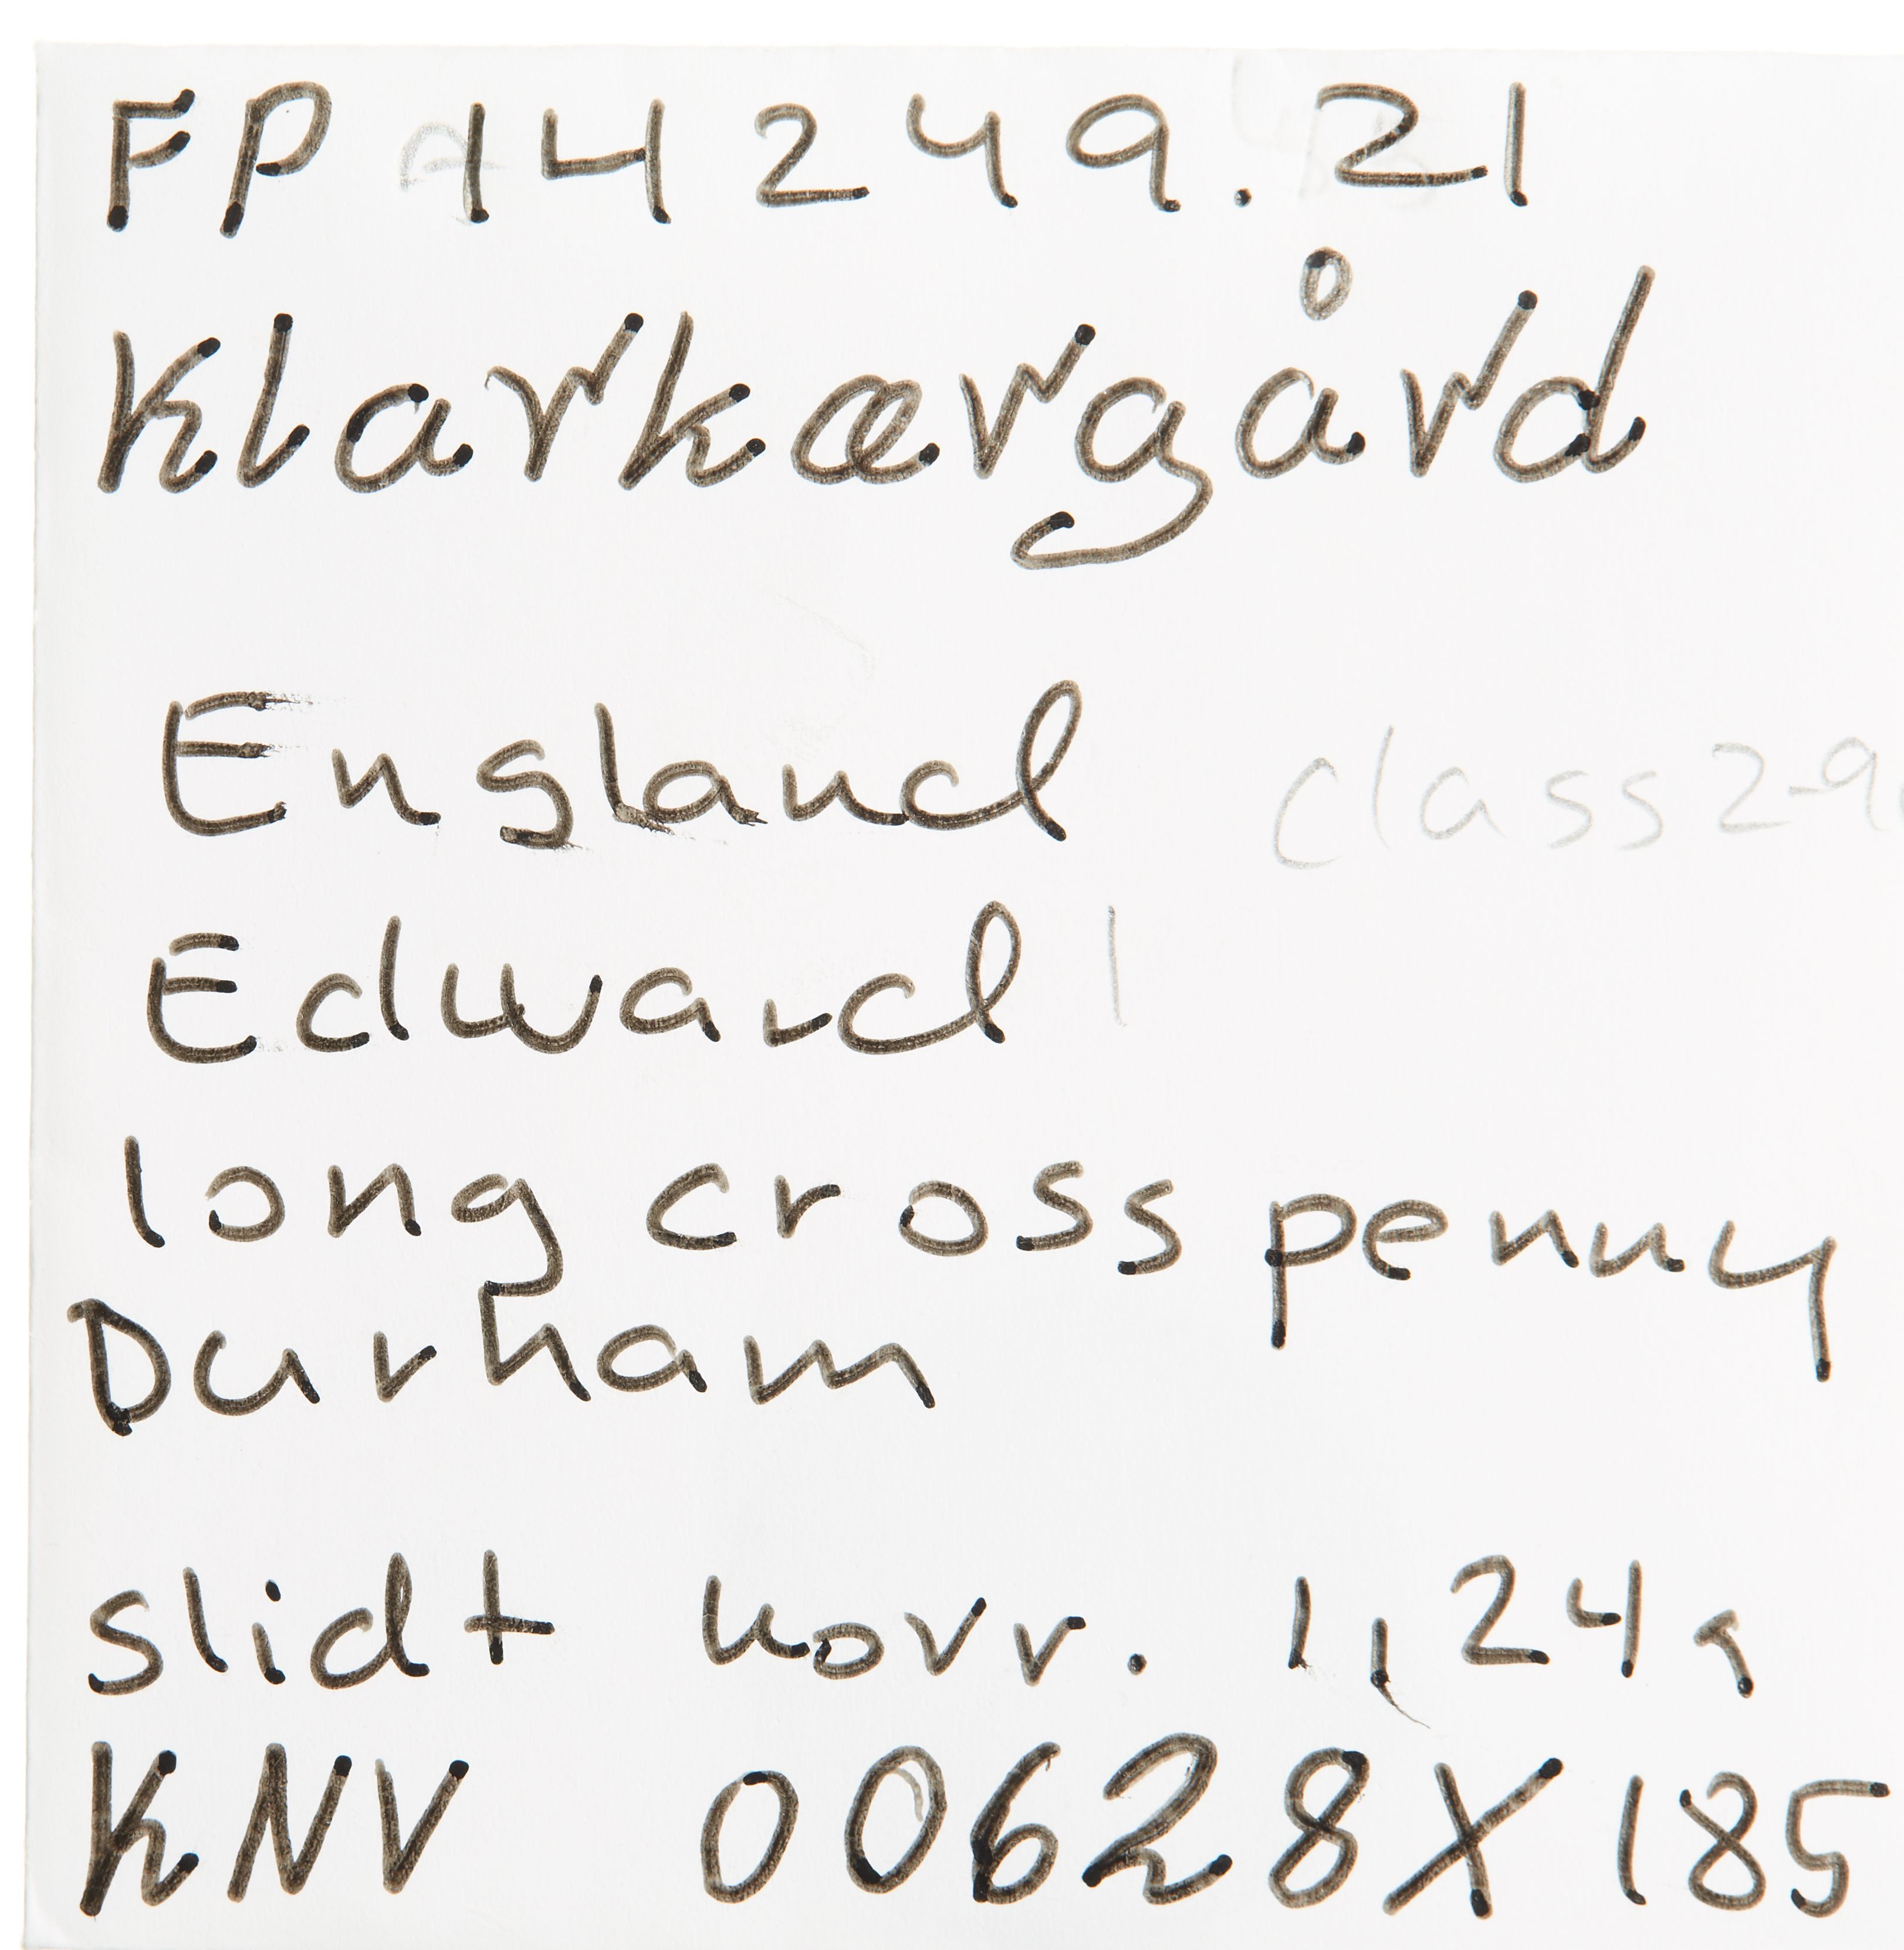 FP 14249.21
Klarkærgård
England class 2-9
Edward 1
long cross penny
Durham
slidt korr. 1,24g
KNV 00628X185